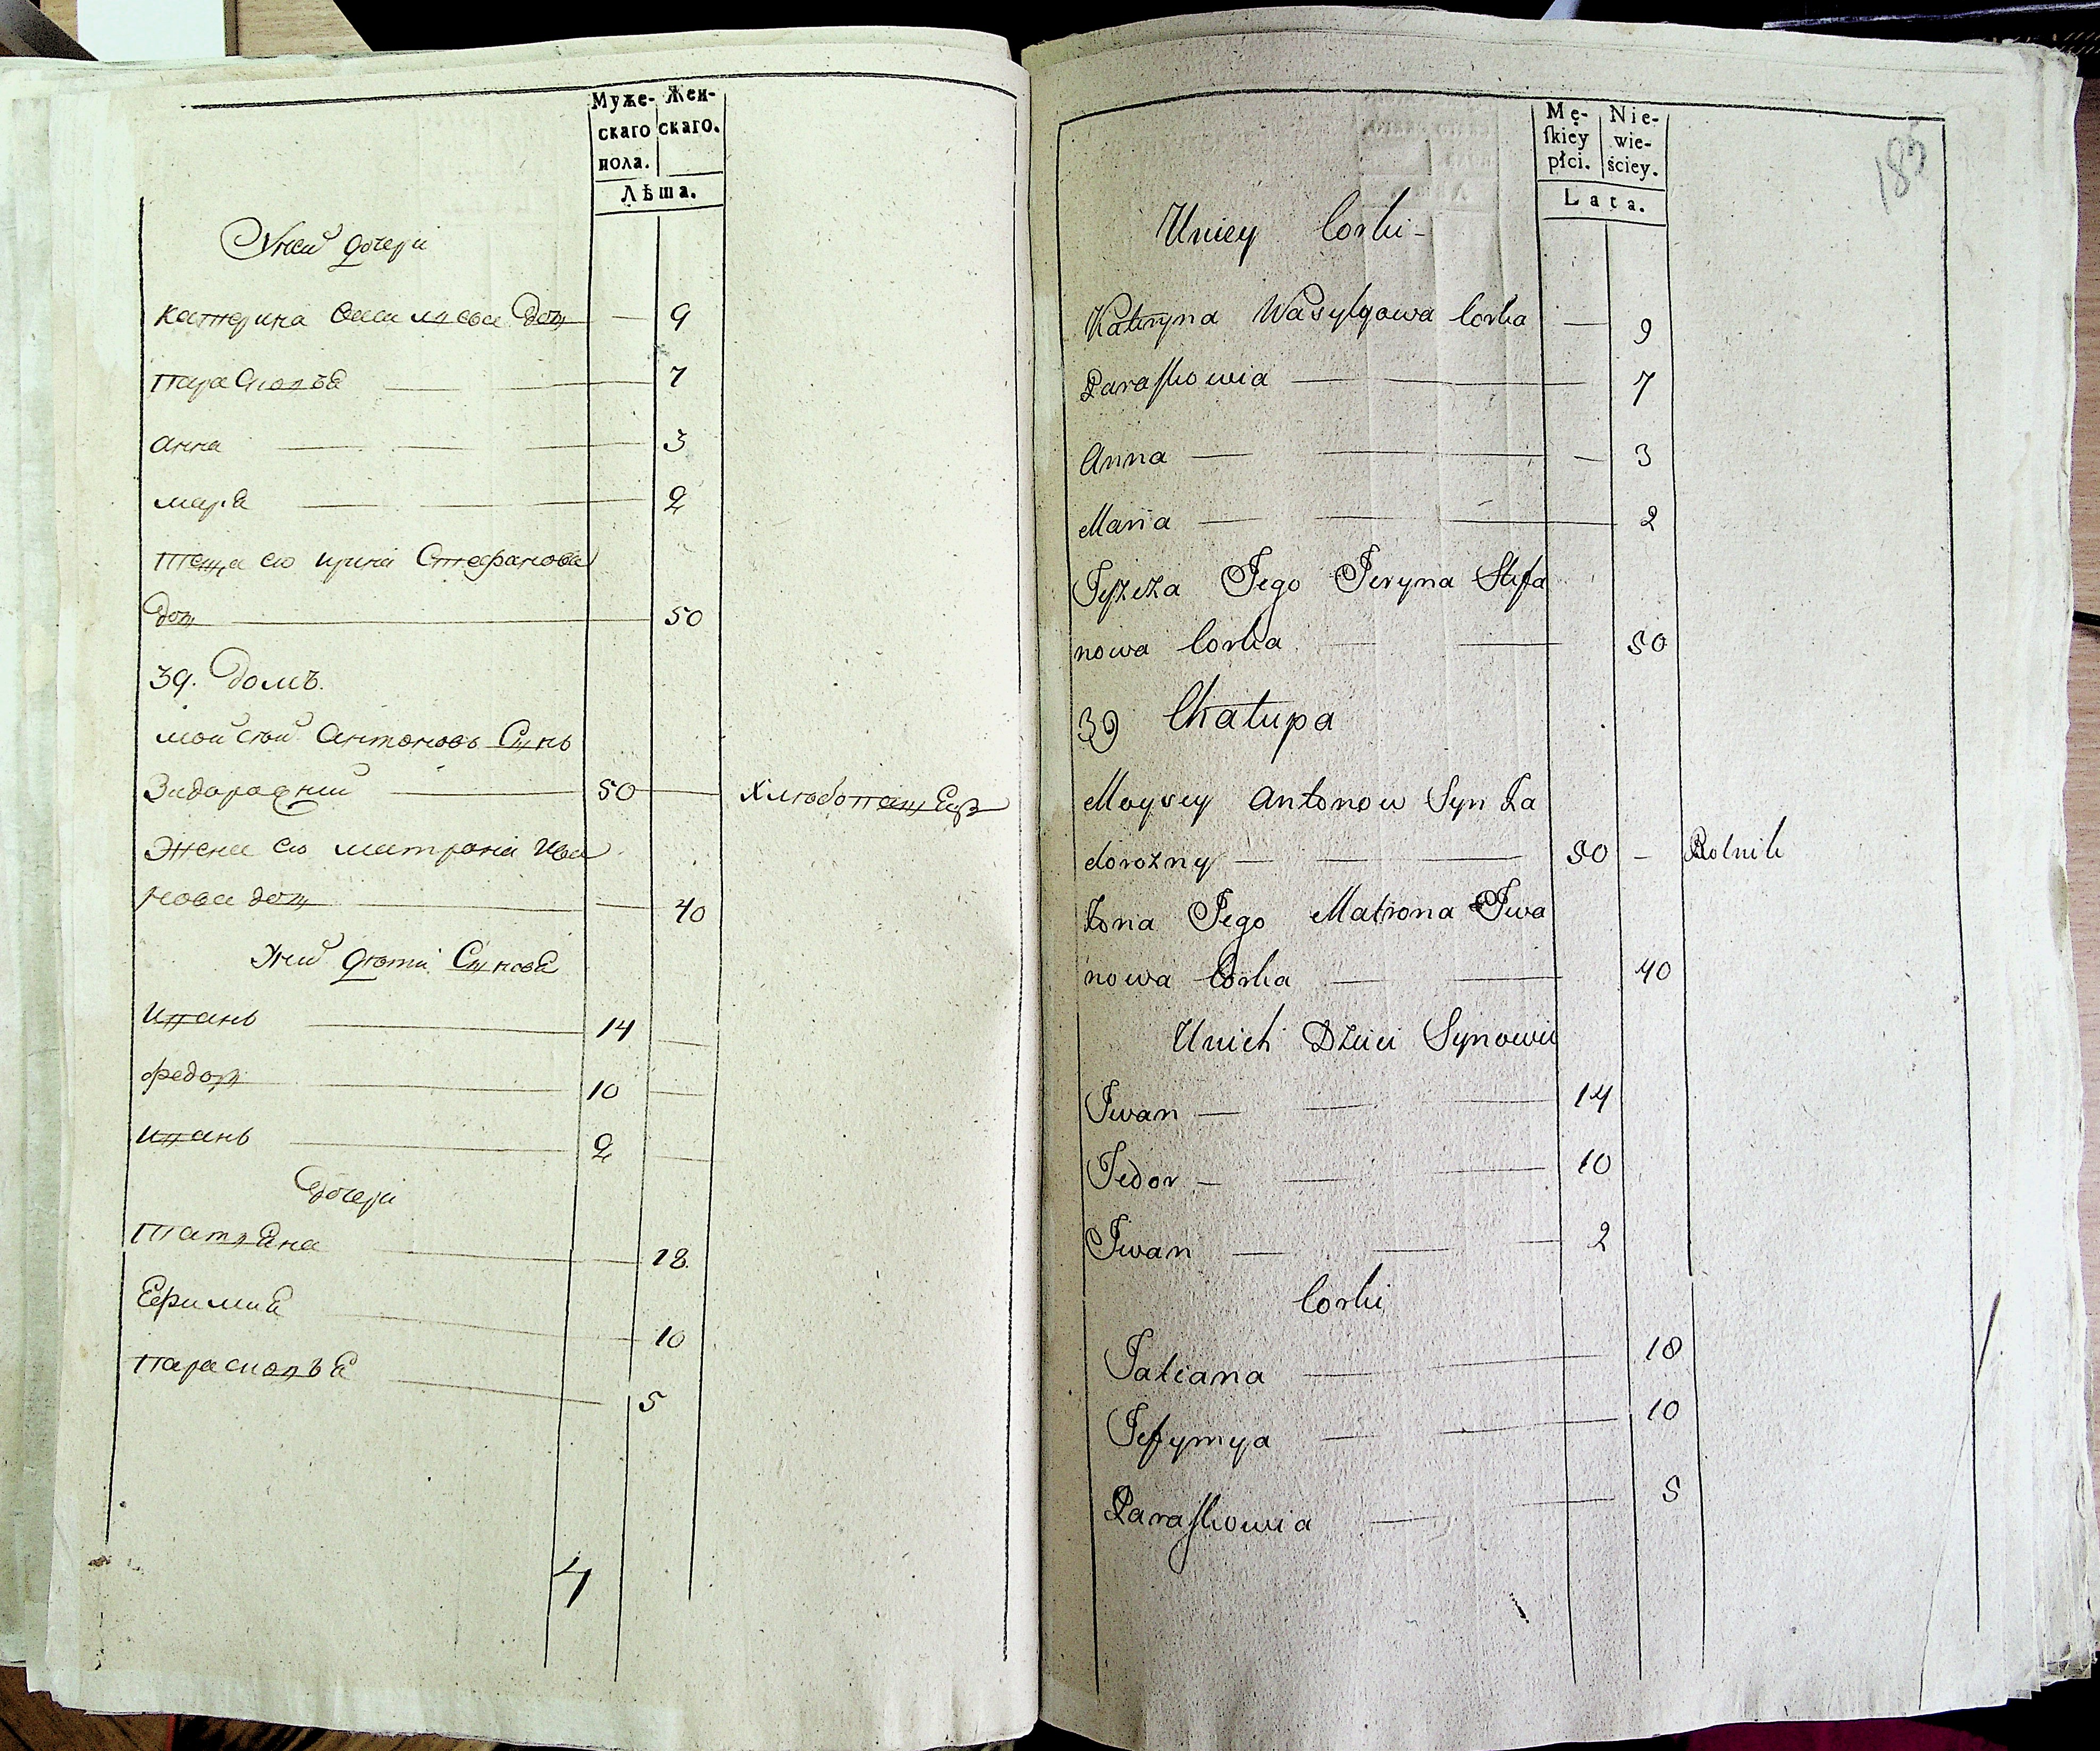 Муже-
скаго
пола.
Жен-
скаго.
Лѣта.
У неи дочери
Катерина Василова доч — 9
Парасковъя 7
Анна 3
Мария 2
Теща ею ирина Стефанова
доч 50
39. Домъ.
Мойсей Антоновъ Сынъ
Задорожний 50 Хлѣбопашец
Жена ею матрона Ива
нова доч — 40
У них дѣти Синовя
Иванъ 14
Федор 10
Иванъ 2
Дочери
Татяна 18.
Ефимия 10
Парасковъя 5
4
Mę-
ſkiey
płci.
Nie-
wie-
ściey.
Lata.
185
Uniey Corki -
Kateryna Wasylyowa Corka — 9
Paraſkowia 7
Anna — 3
Maria 2
Teszcza Jego Jeryna Stefa
nowa Corka 50
39 Chatupa
Moysey Antonow Syn Za
dorozny 50 — Rolnik
Zona Jego Matrona Jwa
nowa Corka 40
Unich Dzieci Synowie
Jwan 14
Fedor 10
Jwan 2
Corki
Tatiana 18
Jefymya 10
Paraſkowia 5